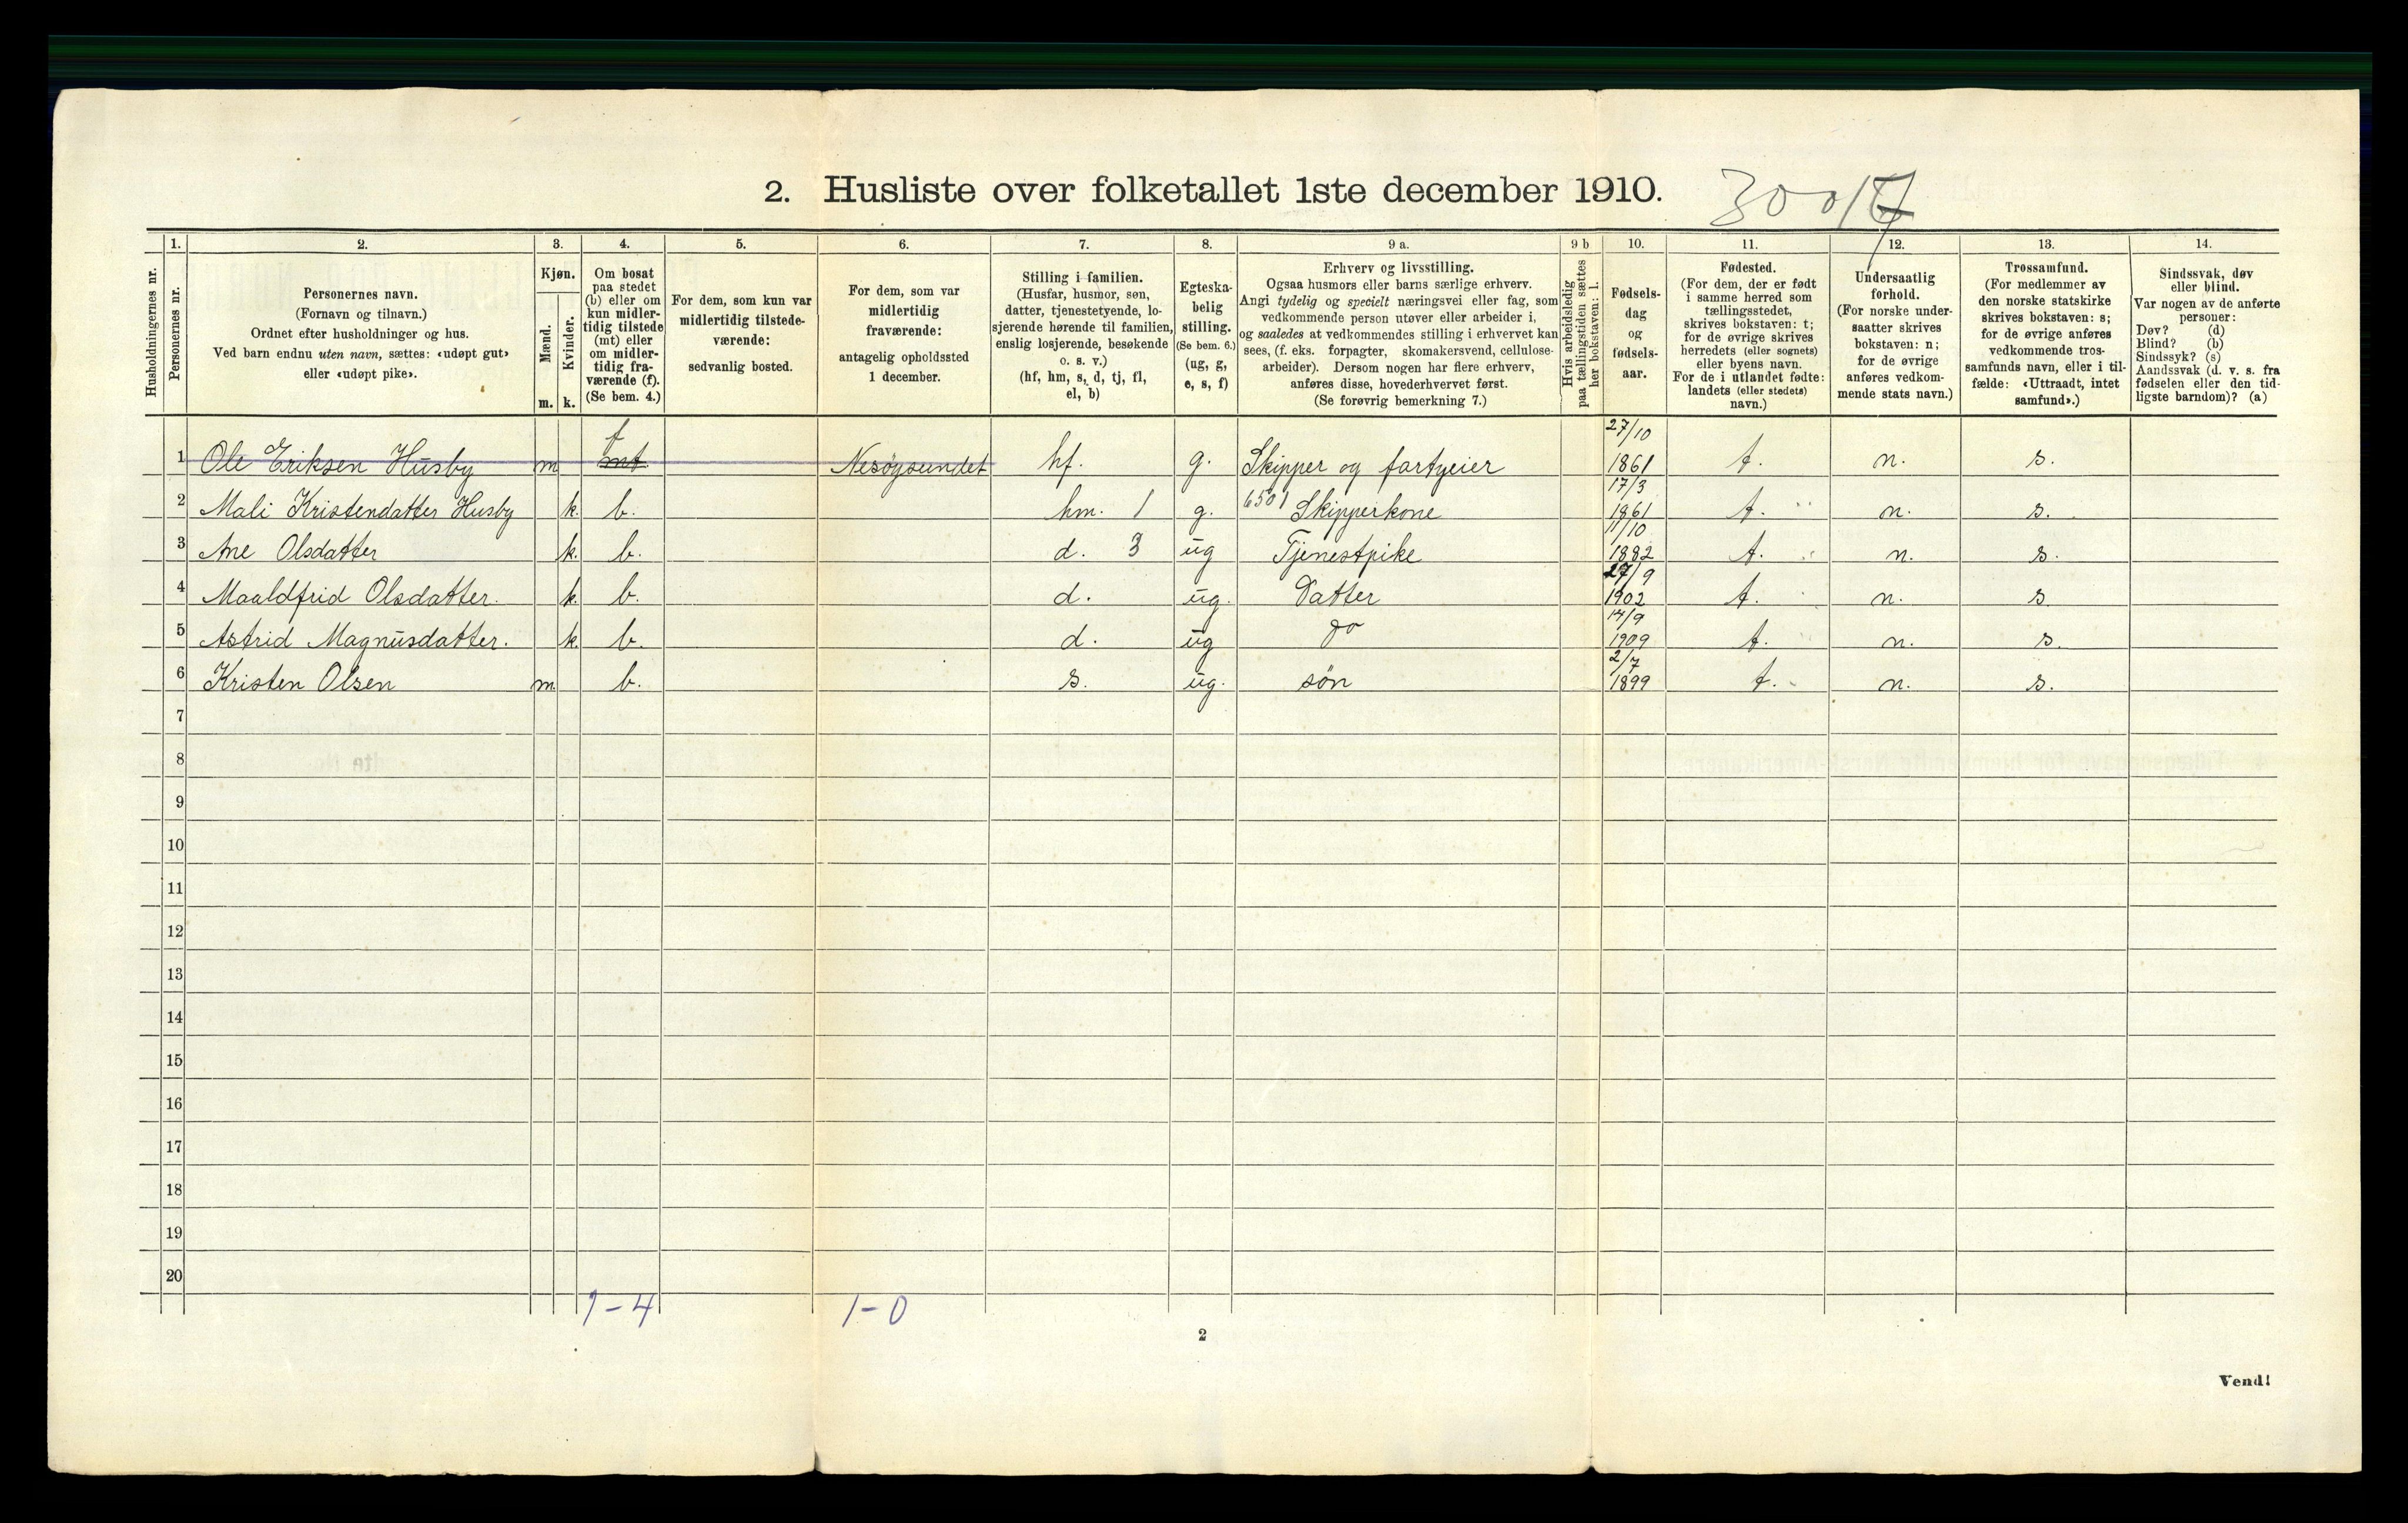 2. Husliste over folketallet 1ste december 1910.
Husholdningernes nr.
1.
Personernes nr.
2.
Personernes navn.
(Fornavn og tilnavn.)
Ordnet efter husholdninger og hus.
Ved barn endnu uten navn, sættes: «udøpt gut»
eller «udøpt pike».
3.
Kjøn.
Mænd.
Kvinder.
m. k.
4.
Om bosat
paa stedet
(b) eller om
kun midler-
tidig tilstede
(mt) eller
om midler-
tidig fra-
værende (f).
(Se bem. 4.)
5.
For dem, som kun var
midlertidig tilstede-
værende:
sedvanlig bosted.
6.
For dem, som var
midlertidig
fraværende:
antagelig opholdssted
1 december.
7.
Stilling i familien.
(Husfar, husmor, søn,
datter, tjenestetyende, lo-
sjerende hørende til familien,
enslig losjerende, besøkende
o. s. v.)
(hf, hm, s, d, tj, fl,
el, b)
8.
Egteska-
belig
stilling.
(Se bem. 6.)
(ug, g,
e, s, f)
9 a.
Erhverv og livsstilling.
Ogsaa husmors eller barns særlige erhverv.
Angi tydelig og specielt næringsvei eller fag, som
vedkommende person utøver eller arbeider i,
og saaledes at vedkommendes stilling i erhvervet kan
sees, (f. eks. forpagter, skomakersvend, cellulose-
arbeider). Dersom nogen har flere erhverv,
anføres disse, hovederhvervet først.
(Se forøvrig bemerkning 7.)
9 b
Hvis arbeidsledig
paa tællingstiden sættes
her bokstaven: l.
10.
Fødsels-
dag
og
fødsels-
aar.
11.
Fødested.
(For dem, der er født
i samme herred som
tællingsstedet,
skrives bokstaven: t;
for de øvrige skrives
herredets (eller sognets)
eller byens navn.
For de i utlandet fødte:
landets (eller stedets)
navn.)
12.
Undersaatlig
forhold.
(For norske under-
saatter skrives
bokstaven: n;
for de øvrige
anføres vedkom-
mende stats navn.)
13.
Trossamfund.
(For medlemmer av
den norske statskirke
skrives bokstaven: s;
for de øvrige anføres
vedkommende tros-
samfunds navn, eller i til-
fælde: «Uttraadt, intet
samfund».)
14.
Sindssvak, døv
eller blind.
Var nogen av de anførte
personer:
Døv? (d)
Blind? (b)
Sindssyk? (s)
Aandssvak (d. v. s. fra
fødselen eller den tid-
ligste barndom)? (a)
1 Ole Eriksen Husby m f mt Nesøysundet hf. g. Skipper og fartyeier 27/10 1861 t. n. s.
2 Mali Kristendatter Husby k. b. hm. 1 g. 6501 Skipperkone 17/3 1861 t. n. s.
3 Ane Olsdatter k. b. d. 3 ug Tjenestpike 11/10 1882 t. n. s.
4 Maaldfrid Olsdatter. k. b. d. ug. Datter 27/9 1902 t. n. s
5 Astrid Magnusdatter. k. b. d. ug do 14/9 1909 t. n. s.
6 Kristen Olsen m. b. s. ug. søn 2/7 1899 t. n. s.
7
8
9
10
11
12
13
14
15
16
17
18
19
20
1-4 1-0
2
Vend!